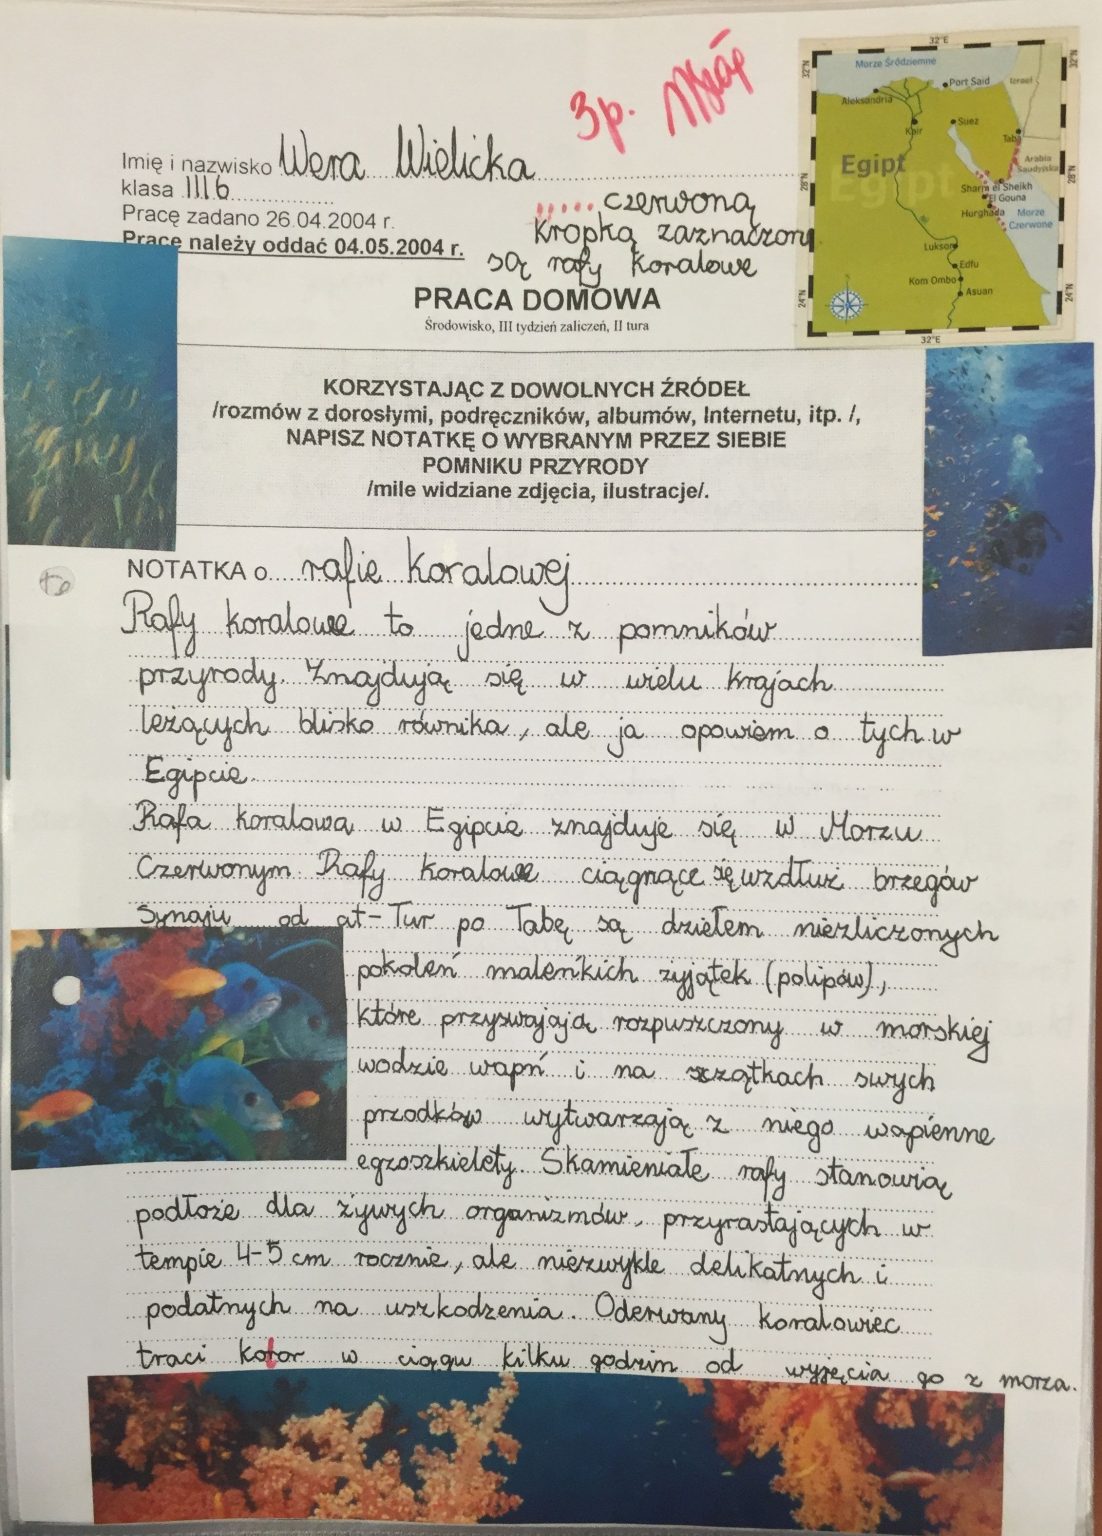 3p.
Imię i nazwisko Wera Wielicka
klasa III b
Pracę zadano 26.04.2004 r.
Pracę należy oddać 04.05.2004 r.
czerwoną
kropką zaznaczone
są rafy koralowe
32°E
32°N
32°N
Morze Śródziemne
Port Said
Izrael
Aleksandria
Kair
Suez
Taba
Egipt
Arabia
Saudyjska
28°N
28°N
Sharm el Sheikh
El Gouna
Hurghada
Morze
Czerwone
Luksor
Edfu
Kom Ombo
Asuan
24°N
24°N
32°E
PRACA DOMOWA
Środowisko, III tydzień zaliczeń, II tura
KORZYSTAJĄC Z DOWOLNYCH ŹRÓDEŁ
/rozmów z dorosłymi, podręczników, albumów, Internetu, itp. /,
NAPISZ NOTATKĘ O WYBRANYM PRZEZ SIEBIE
POMNIKU PRZYRODY
/mile widziane zdjęcia, ilustracje/.
NOTATKA o rafie koralowej
Rafy koralowe to jedne z pomników
przyrody. Znajdują się w wielu krajach
leżących blisko równika, ale ja opowiem o tych w
Egipcie.
Rafa koralowa w Egipcie znajduje się w Morzu
Czerwonym. Rafy koralowe ciągnące się wzdłuż brzegów
Synaju od at-Tur po Tabę są dziełem niezliczonych
pokoleń maleńkich zyjątek (polipów),
które przyswajają rozpuszczony w morskiej
wodzie wapń i na szczątkach swych
przodków wytwarzają z niego wapienne
egzoszkielety. Skamieniałe rafy stanowią
podłoże dla żywych organizmów, przyrastających w
tempie 4-5 cm rocznie, ale niezwykle delikatnych i
podatnych na uszkodzenia. Oderwany koralowiec
traci kolor w ciągu kilku godzin od wyjęcia go z morza.